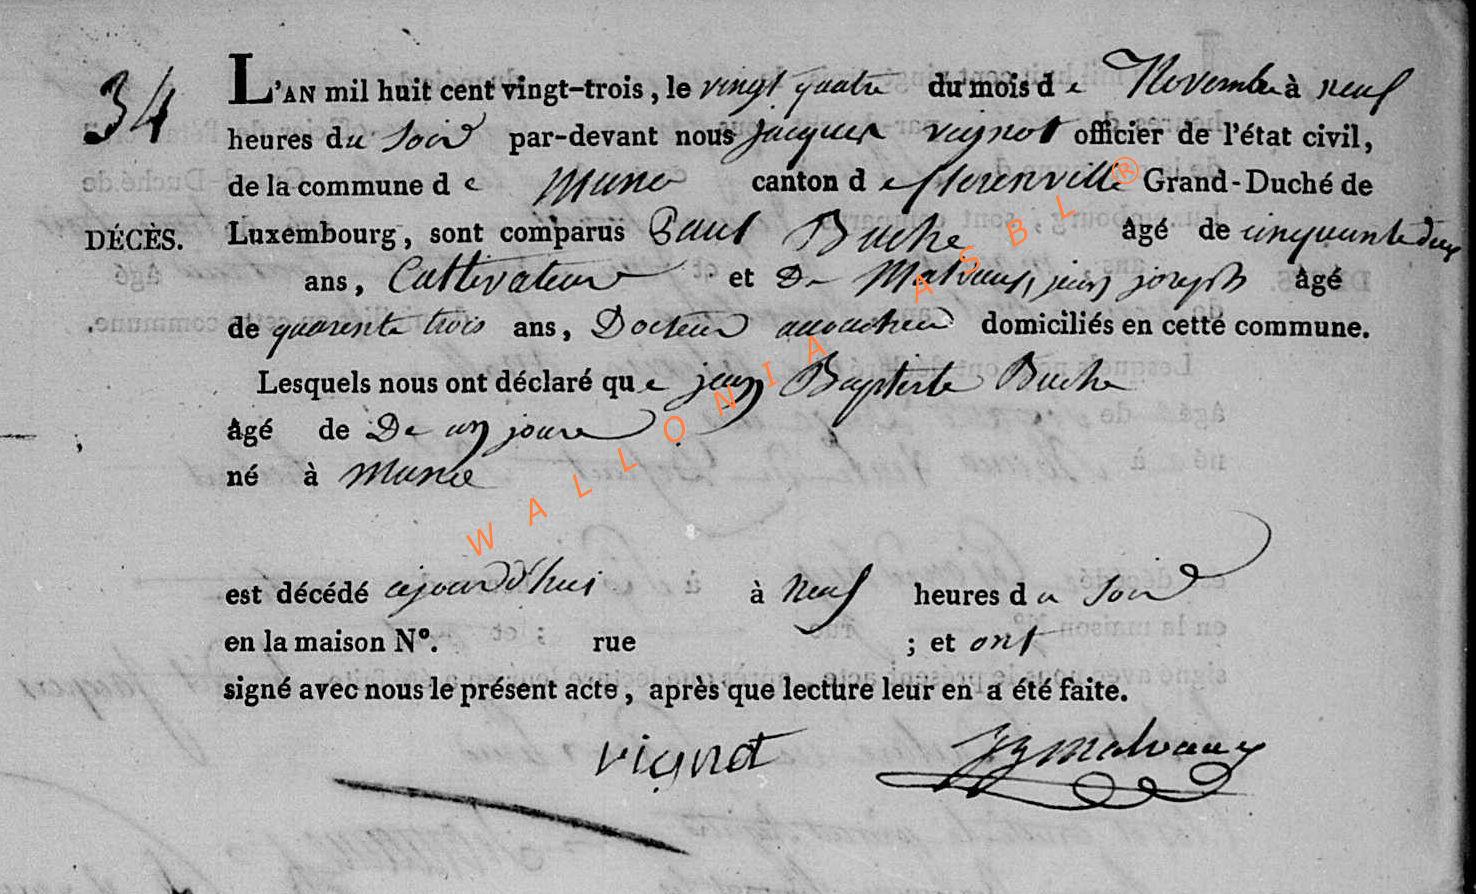 34
L'AN mil huit cent vingt-trois, le vingt quatre du mois de Novembre à neuf
heures du Soir par-devant nous jacques vignot officier de l'état civil,
de la commune de Muno canton de florenville Grand-Duché de
DÉCÈS. Luxembourg, sont comparus Paul Buche âgé de cinquante deux
ans, Cultivateur et De Malvaux, jean joseph âgé
de quarente trois ans, Docteur accoucheur domiciliés en cette commune.
Lesquels nous ont déclaré que jean Baptiste Buche
âgé de De un jour
né à Muno
est décédé ajourd'hui à neuf heures du Soir
en la maison N°. rue ; et ont
signé avec nous le présent acte, après que lecture leur en a été faite.
vignot JJ Malvaux
WALLONIA ASBL®